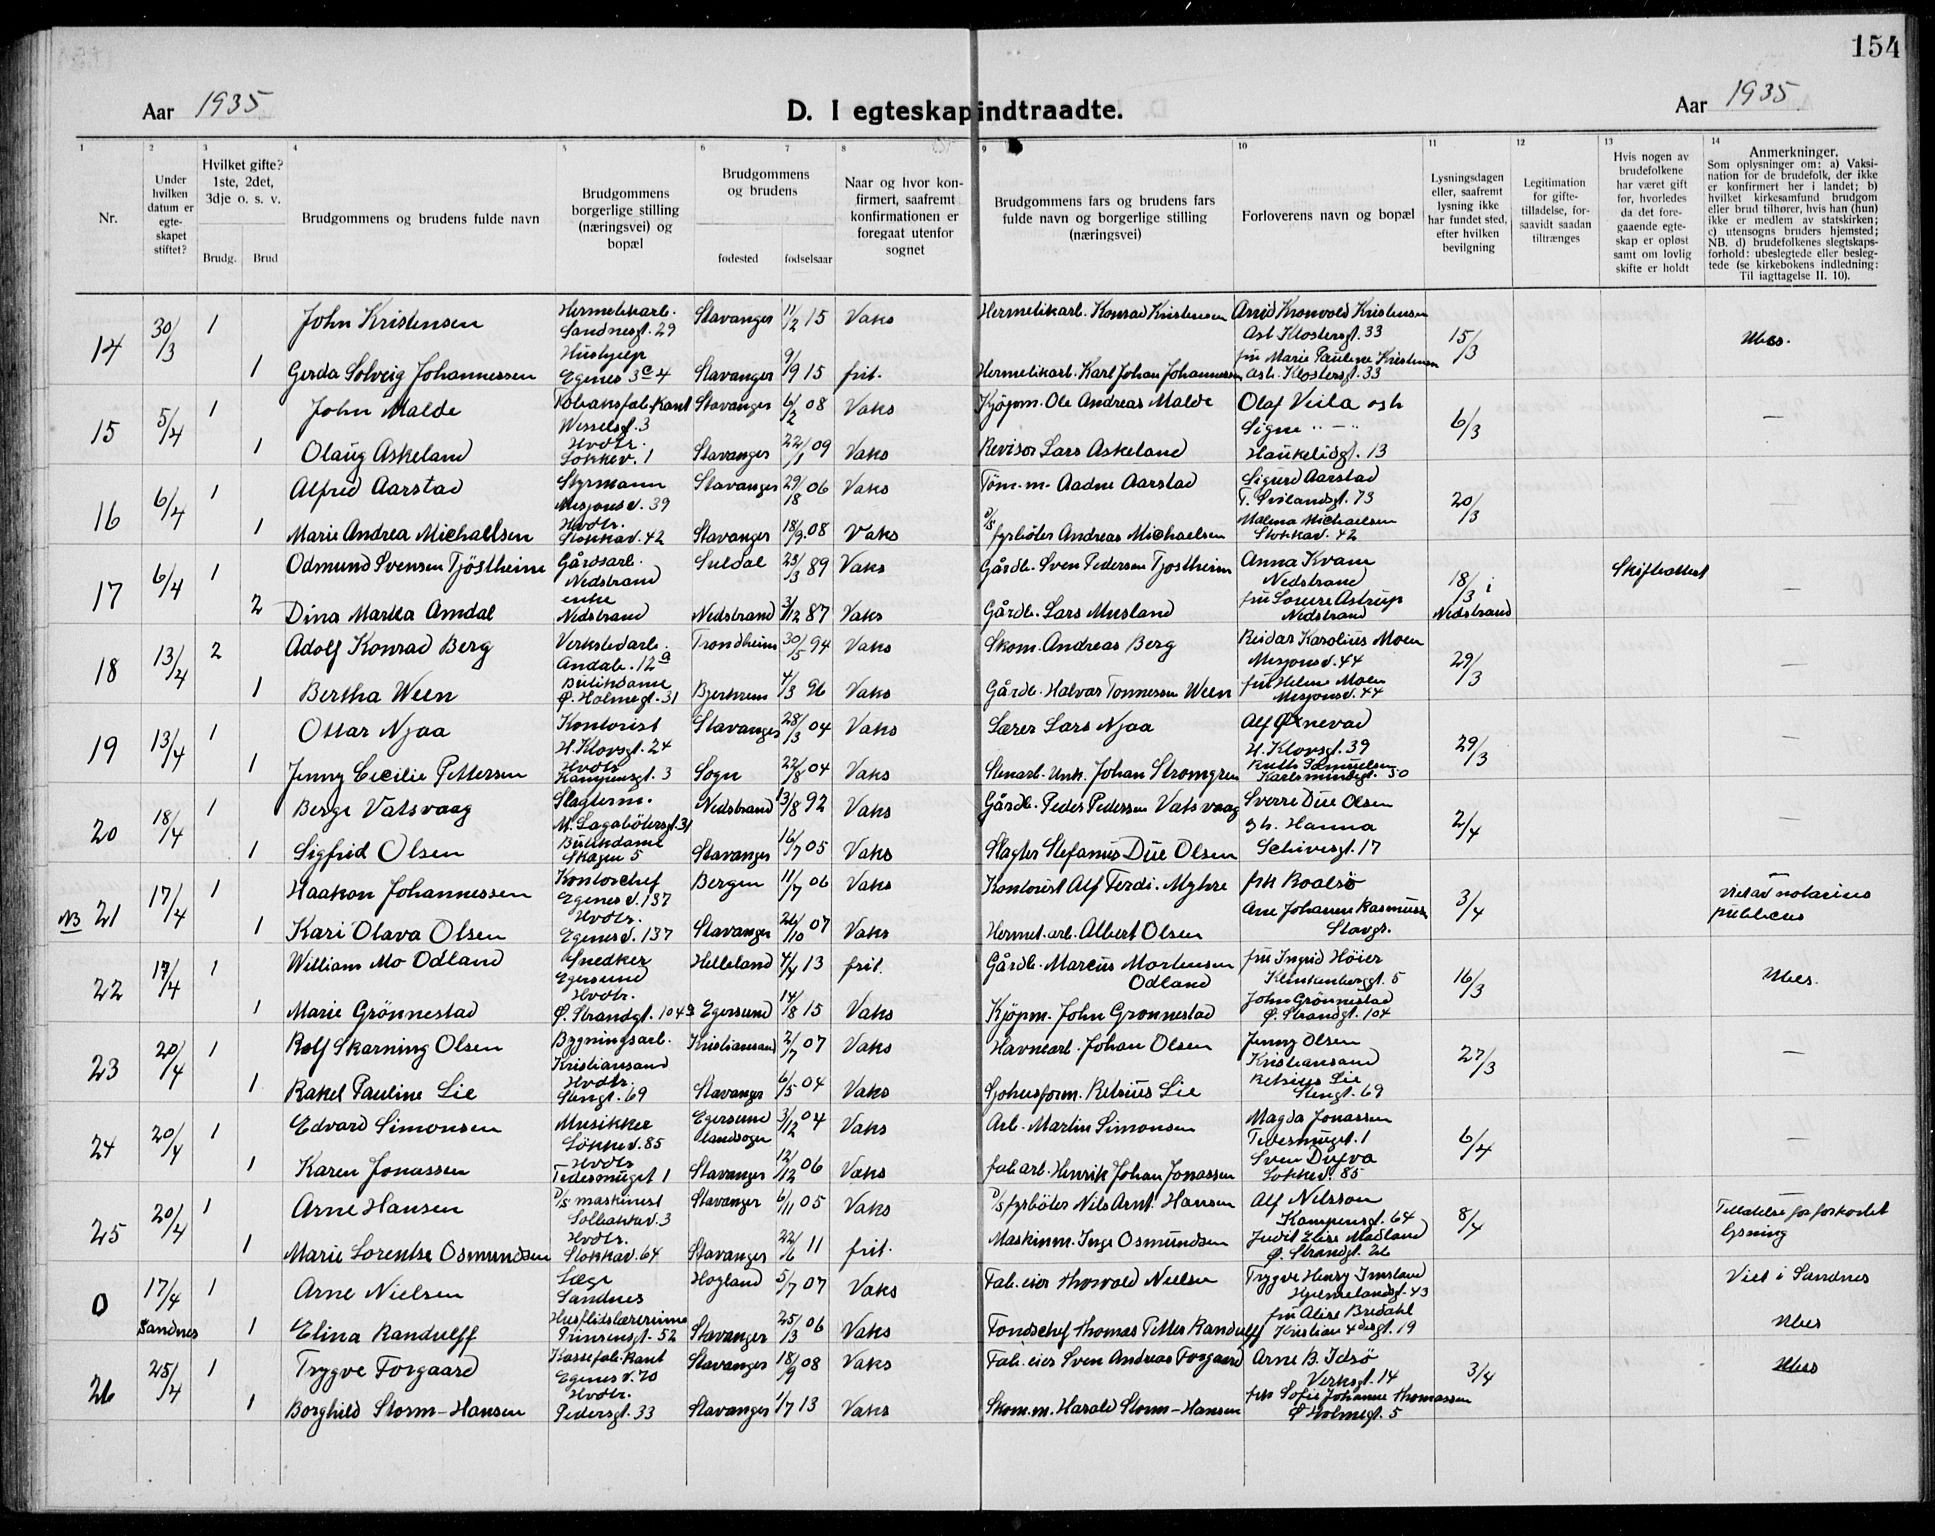 154
Aar 1935
D. I egteskap indtraadte.
Aar 1935
1 2 3 4 5 6 7 8 9 10 11 12 13 14
Nr.
Under hvilken datum er egte-skapet stiftet?
Hvilket gifte? 1ste, 2det, 3dje o. s. v.
Brudg. Brud
Brudgommens og brudens fulde navn
Brudgommens borgerlige stilling (næringsvei) og bopæl
Brudgommens og brudens
fødested fødselsaar
Naar og hvor kon-firmert, saafremt konfirmationen er foregaat utenfor sognet
Brudgommens fars og brudens fars fulde navn og borgerlige stilling (næringsvei)
Forloverens navn og bopæl
Lysningsdagen eller, saafremt lysning ikke har fundet sted, efter hvilken bevilgning
Legitimation for gifte-tilladelse, for-saavidt saadan tiltrænges
Hvis nogen av brudefolkene har været gift før, hvorledes da det fore-gaaende egte-skap er opløst samt om lovlig skifte er holdt
Anmerkninger.
Som oplysninger om: a) Vaksi-nation for de brudefolk, der ikke er konfirmert her i landet; b) hvilket kirkesamfund brudgom eller brud tilhører, hvis han (hun) ikke er medlem av statskirken; c) utensogns bruders hjemsted; NB. d) brudefolkenes slegtskaps-forhold: ubeslegtede eller besleg-tede (se kirkebokens indledning: Til iagttagelse II. 10).
14 30/3 1 John Kristensen Hermetikarb. Sandnesgt. 29 Stavanger 11/2 15 Vaks Hermetikarb. Konrad Kristensen Arvid Kronvold Kristensen Ast. Klostergt. 33 15/3 Ubes.
1 Gerda Solveig Johannessen Hushjelp Egenes 3 c 4 Stavanger 9/9 15 frit. Hermetikarb. Karl Johan Johannessen fru Marie Pauline Kristensen Ast. Klostergt. 33
15 5/4 1 John Malde Tobaksfabrikant Wesselsgt. 3 Stavanger 6/2 08 Vaks Kjöpm. Ole Andreas Malde Olaf Veila og h. Signe " — " 6/3 —
1 Olaug Askeland Hvdtr. Løkkev. 1 Stavanger 22/1 09 Vaks Revisor Lars Askeland Haukeligt. 13
16 6/4 1 Alfred Aarstad Styrmann Misjonsv. 39 Stavanger 29/18 06 Vaks Töm.m. Aadne Aarstad Sigurd Aarstad T. Svilandsgt. 73 20/3 —
1 Marie Andrea Michaelsen Hvdtr. Stokkav. 42 Stavanger 18/9 08 Vaks D/S fyrböter Andreas Michaelsen Malena Michaelsen Stokkav. 42
17 6/4 1 Odmund Svensen Tjöstheim Gårdsarb. Nedstrand Suldal 25/3 89 Vaks Gårdb. Sven Pedersen Tjöstheim Anna Kvam Nedstrand 18/3 i Nedstrand Skifte attest —
2 Dina Martha Amdal enke Nedstrand Nedstrand 3/12 87 Vaks Gårdb. Lars Musland fru Astrup Nedstrand
18 13/4 2 Adolf Konrad Berg Verkstedarb. Andab. 12 a Trondheim 30/5 94 Vaks Skom. Andreas Berg Reidar Karolius Moen Misjonsv. 44 29/3 —
1 Bertha Ween Butikdame Ø. Holmegt. 31 Bjerkrem 4/3 96 Vaks Gårdb. Halvar Tonnessen Ween fru Helene Moen Misjonsv. 44
19 13/4 1 Ottar Njaa Kontorist H. Klovsgt. 24 Stavanger 28/3 04 Vaks Lærer Lars Njaa Alf Øxnevad H. Klovsgt. 39 29/3 —
1 Jenny Cecilie Pettersen Hvdtr Kampensgt. 3 Sogn 22/8 04 Vaks Stenarb. Unk. Johan Stromgren Ruth Samuelsen Karlsminnegt. 50
20 18/4 1 Berge Vatsvaag Slagterm. M. Lagabötersgt. 31 Nedstrand 13/8 92 Vaks Gårdb. Peder Pedersen Vatsvaag Sverre Due Olsen 2/4 —
1 Sigfrid Olsen Butikdame Skagen 5 Stavanger 16/7 05 Vaks Slagter Stefanus Due Olsen og h. Hanna Schivesgt. 17
NB 21 17/4 1 Haakon Johannessen Kontorchef Egenes v. 137 Bergen 11/7 06 Vaks Kontorist Alf Ferdi. Myhre frk Roalsö 3/4 — Viet av notarius publicus
1 Kari Olava Olsen Hvdtr. Egenes v. 137 Stavanger 26/10 07 Vaks Hermet. arb. Albert Olsen Arne Johannes Rasmussen Stavgr.
22 17/4 1 William Mo Odland Snedker Egersund Helleland 7/4 13 frit. Gårdb. Marcus Mortensen Odland fru Ingrid Höier Klinkenberggt. 5 16/3 Ubes.
1 Marie Grönnestad Hvdtr. Ø. Strandgt. 104 Egersund 14/8 15 Vaks Kjöpm. John Grönnestad John Grönnestad Ø. Strandgt. 104
23 20/4 1 Rolf Skarning Olsen Bygningsarb. Kristiansand Kristiansand 2/7 07 Vaks Havnearb. Johan Olsen Jenny Olsen Kristiansand 27/3 —
1 Rakel Pauline Lie Hvdtr. Stengt. 69 Stavanger 6/5 04 Vaks Retsius Lie Retsius Lie Stengt. 69
24 20/4 1 Edvard Simonsen Musikker Løkkev. 85 Egersund landsogn 3/12 04 Vaks Arb. Martin Simonsen Magda Jonassen Tidesmuget. 1 6/4 —
1 Karen Jonassen Hvdtr Tidesmuget 1 Stavanger 12/12 06 Vaks fab. arb. Henrik Johan Jonassen Sven Løkkev. 85
25 20/4 1 Arne Hansen D/S maskinist Solbakkav. 3 Stavanger 6/11 05 Vaks D/S fyrböter Nils Arnt. Hansen Alf Nilsson Kampensgt. 64 8/4 — Tilladelse for forkortet lysning
1 Marie Lorentse Osmundsen Hvdtr. Stokkav. 64 Stavanger 22/6 11 frit. Maskinm. Inge Osmundsen Judit Elise Madland Ø. Strandgt. 26
0 17/4 Sandnes 1 Arne Nielsen Læge Sandnes Hogland 5/7 07 Vaks Fab. eier Thorvald Nielsen Trygve Henry Imsland Hjelmelandsgt. 43 Viet i Sandnes
1 Elina Randulff Husflidslærerinne Prinsensgt. 52 Stavanger 25/3 06 Vaks Fondschef Thomas Petter Randulff fru Alise Bredahl Kristian 4des gt. 19 Ubes
26 25/4 1 Trygve Forgaard Kassefabrikant Egenes v. 70 Stavanger 18/9 08 Vaks Fab. eier Sven Andreas Forgaard Arne B. Idsö Verksgt. 14 3/4 Ubes
1 Borghild Storm-Hansen Hvdtr. Pedersgt. 33 Stavanger 1/7 13 Vaks Skom.m. Harald Storm-Hansen frk Sofie Johanne Thomassen Ø Holmegt. 5